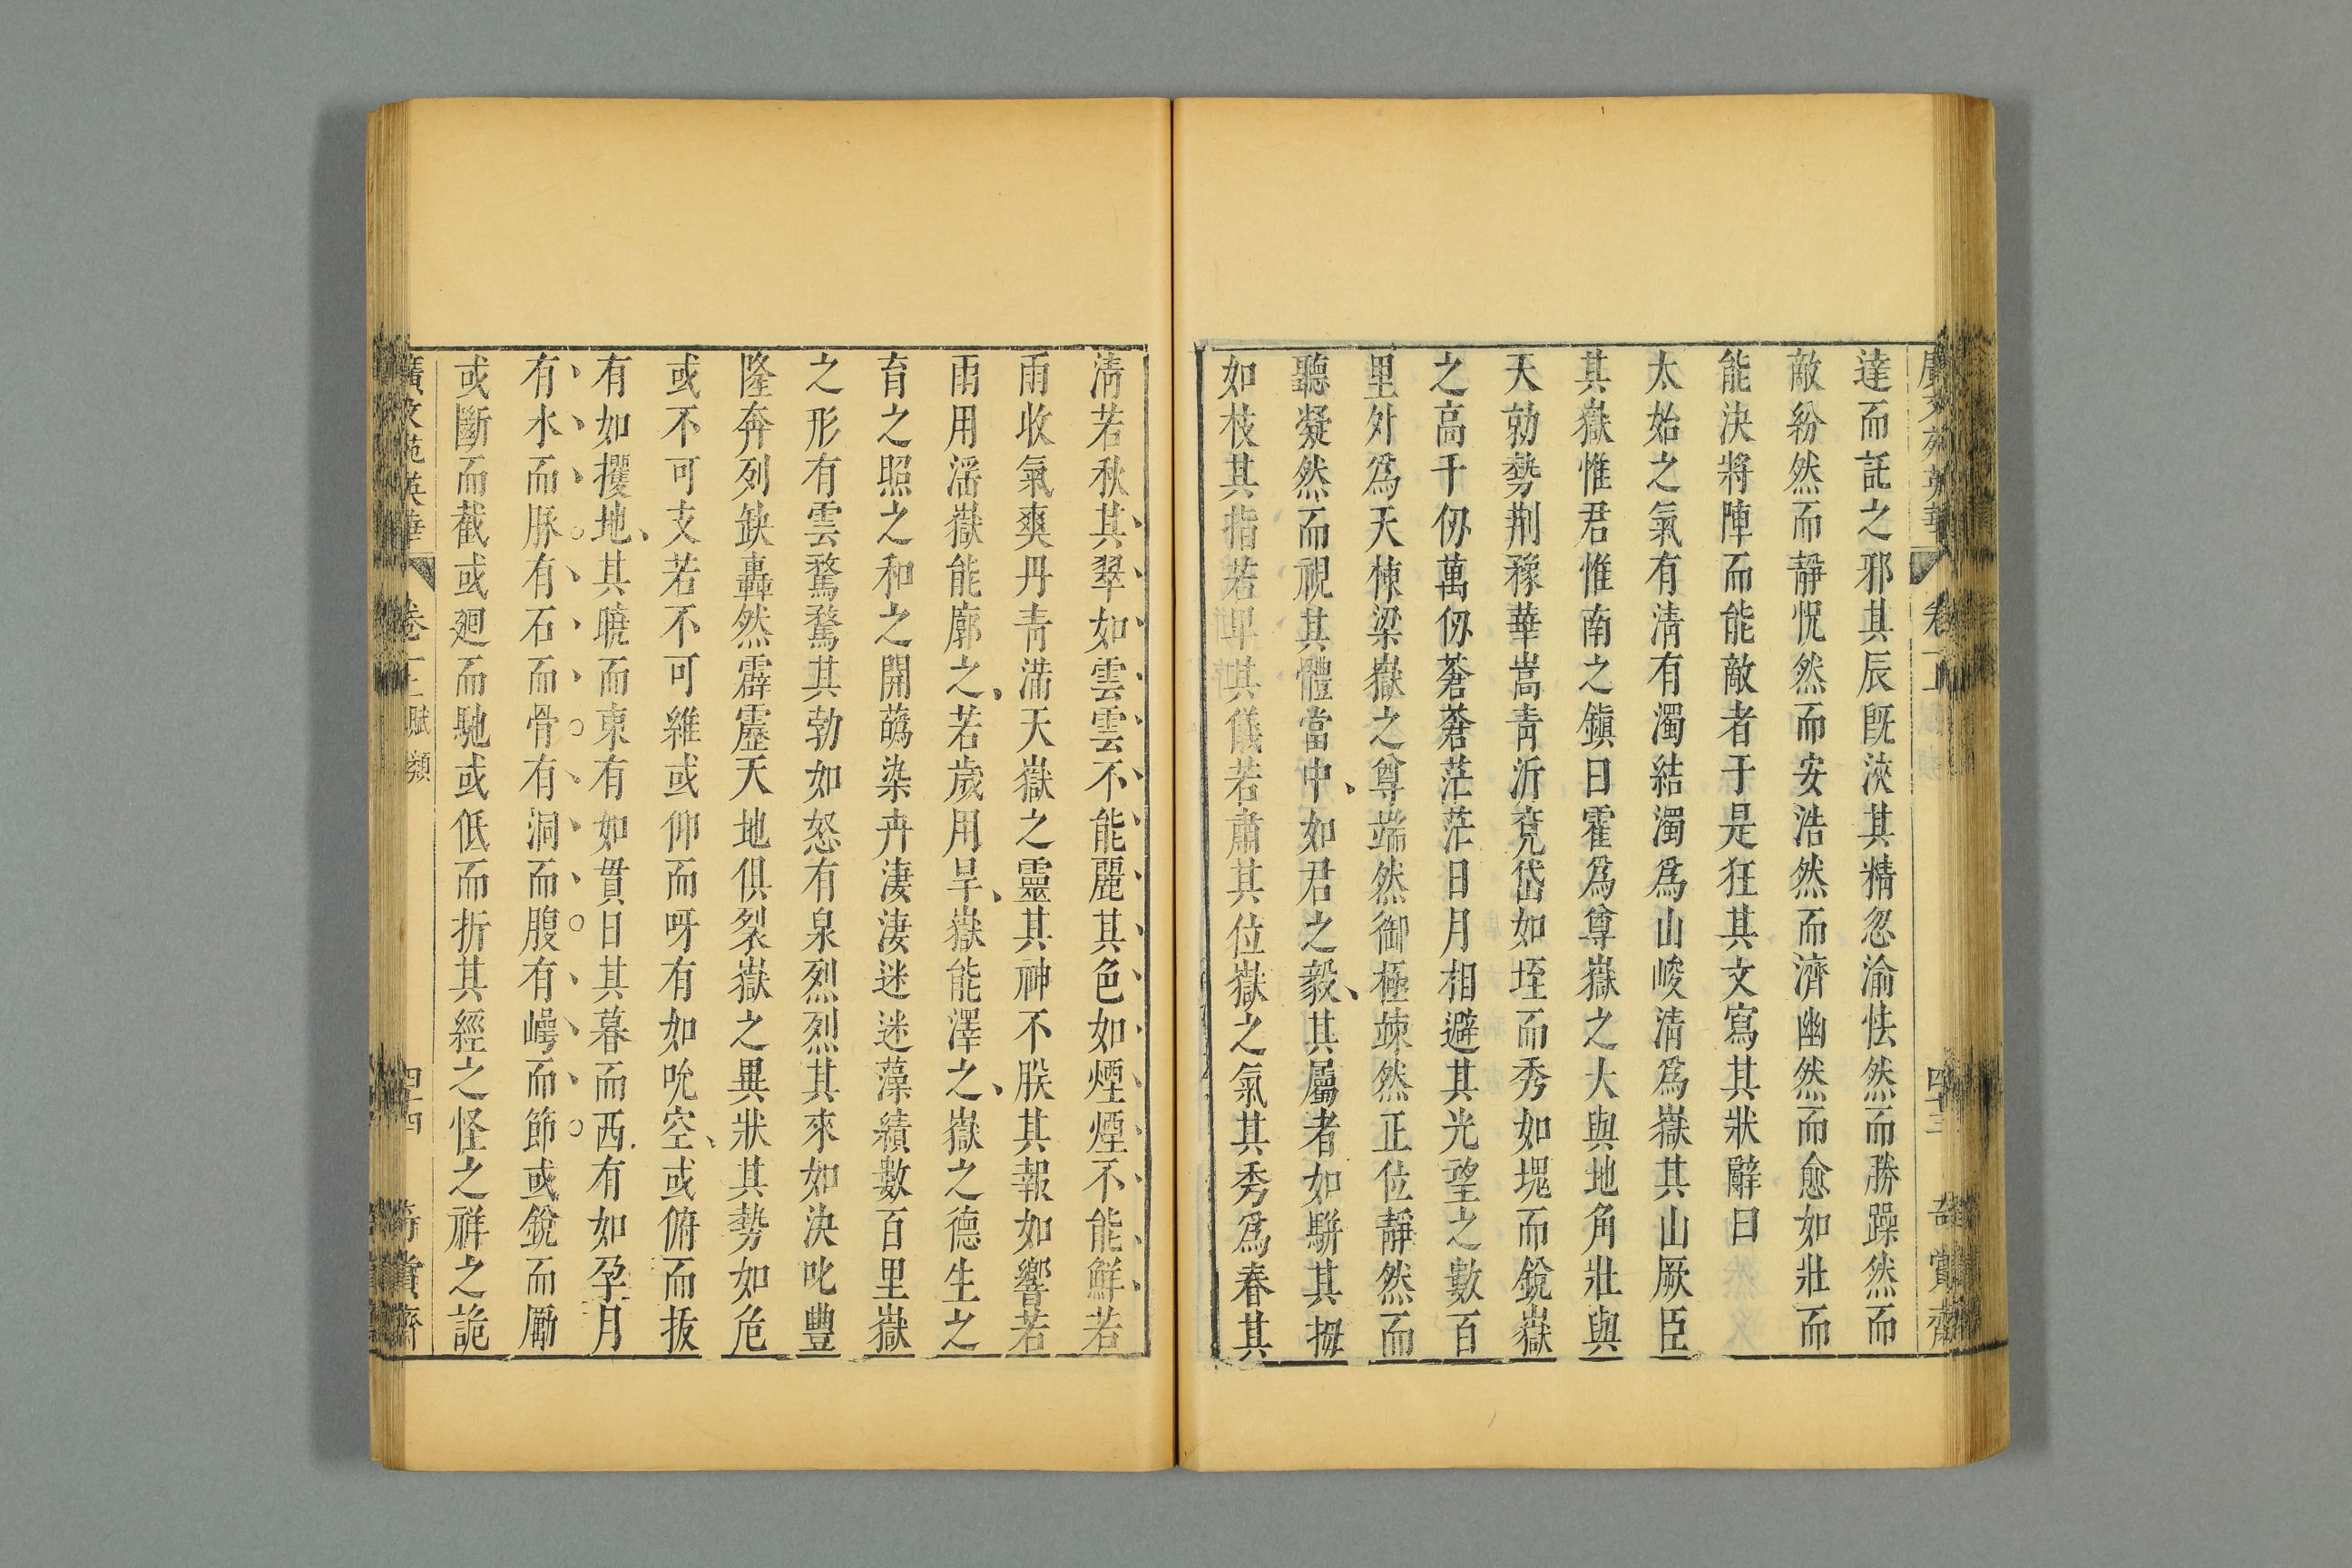 廣文苑英華 卷十二 賦類 四十三 奇賞齋
達而託之邪其辰既浹其精忽渝怯然而勝躁然而
敵紛然而靜怳然而安浩然而濟幽然而愈如壯而
能決將陣而能敵者于是狂其文寫其狀辭曰
太始之氣有清有濁結濁爲山峻清爲嶽其山厥臣
其嶽惟君惟南之鎭曰霍爲尊嶽之大與地角壯與
天勍勢荆豫華嵩青沂兗岱如垤而秀如塊而銳嶽
之高千仞萬仞蒼蒼茫茫日月相避其光望之數百
里外爲天棟梁嶽之尊端然御極竦然正位靜然而
聽凝然而視其體當中如君之毅其屬者如駢其拇
如枝其指若畢其儀若肅其位嶽之氣其秀爲春其
清若秋其翠如雲雲不能麗其色如煙煙不能鮮若
雨收氣爽丹青滿天嶽之靈其神不朕其報如響若
雨用滛嶽能廓之若歲用旱嶽能澤之嶽之德生之
育之照之和之開蘤染卉淒淒迷迷藻績數百里嶽
之形有雲鶩鶩其勃如怒有泉烈烈其來如決叱豐
隆奔列缺轟然霹靂天地俱裂嶽之異狀其勢如危
或不可支若不可維或仰而呀有如吮空或俯而拔
有如攫地其曉而東有如貫日其暮而西有如孕月
有水而脈有石而骨有洞而腹有崿而節或銳而勵
或斷而截或廻而馳或低而折其經之怪之祥之詭
廣文苑英華 卷十二 賦類 四十四 奇賞齋